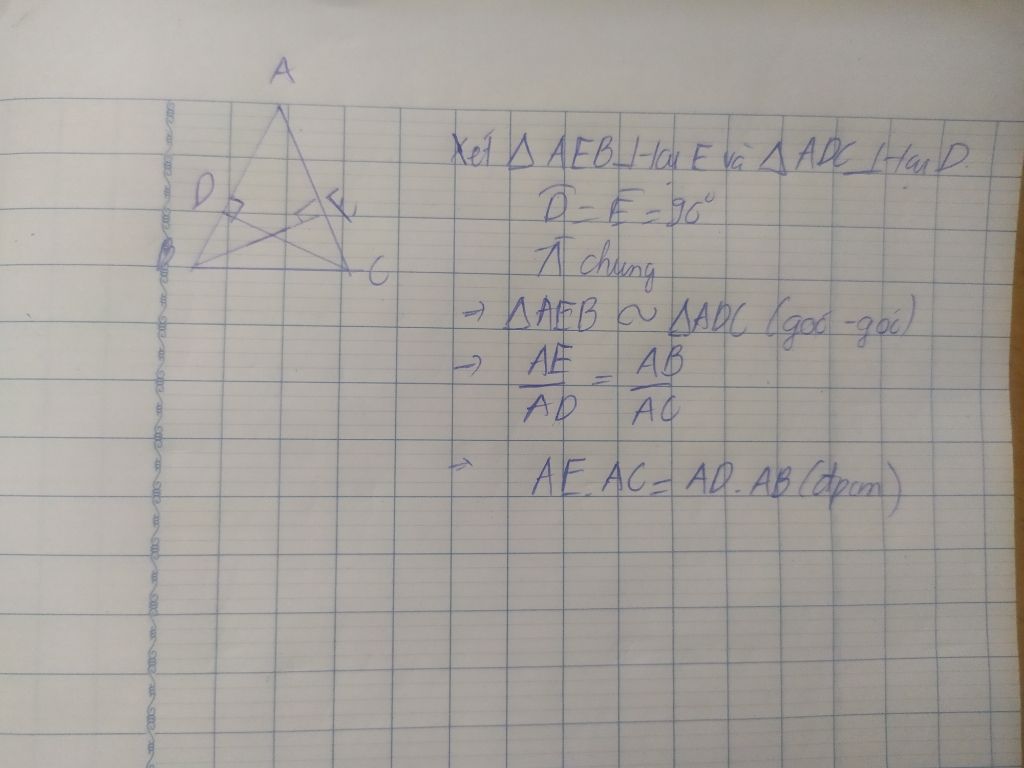 A
D
E
B
C
Xét △AEB ⊥ tại E và △ADC ⊥ tại D.
D̂ = Ê = 90°
Â chung
→ △AEB ~ △ADC (góc - góc)
→ AE/AD = AB/AC
→ AE. AC = AD. AB (đpcm)